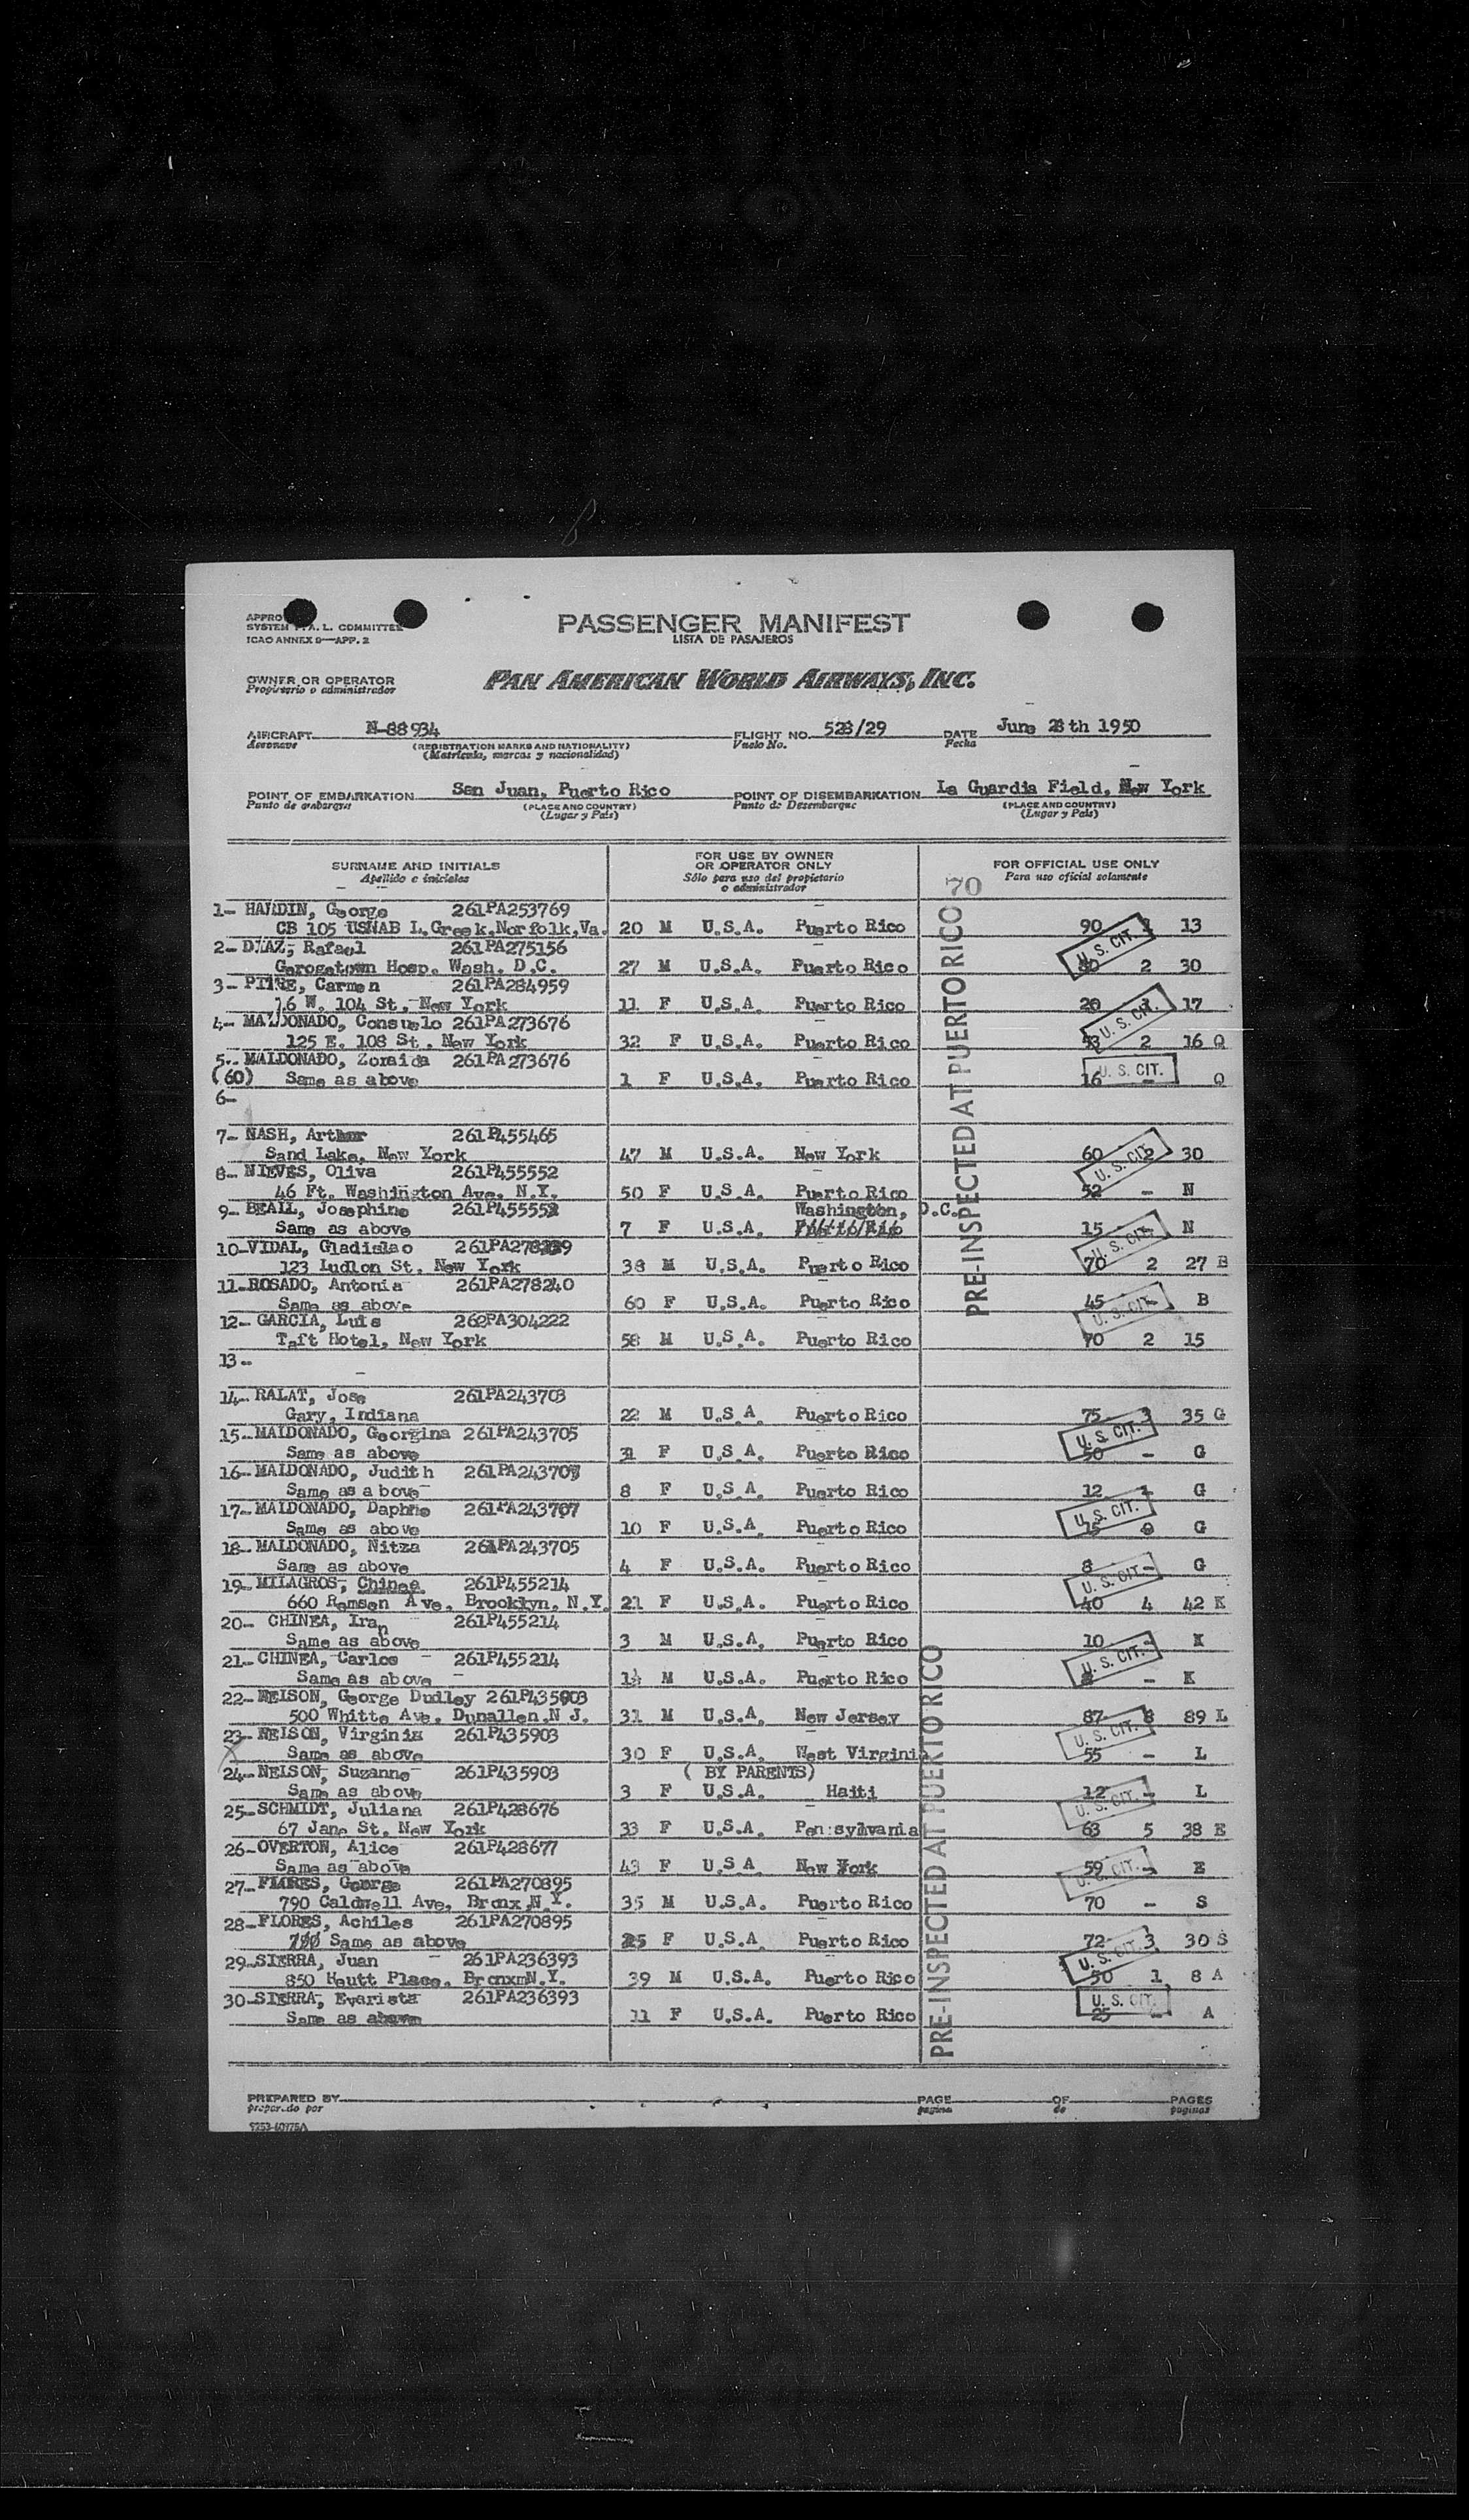 SYSTEM F.A.L. COMMITTEE
ICAO ANNEX 9—APP. 2
PASSENGER MANIFEST
LISTA DE PASAJEROS
OWNER OR OPERATOR
Propietario o administrador
PAN AMERICAN WORLD AIRWAYS, INC.
AIRCRAFT N-88934 FLIGHT NO. 528/29 DATE June 28th 1950
Aeronave (REGISTRATION MARKS AND NATIONALITY) Vuelo No. Fecha
(Matricula, marcas y nacionalidad)
POINT OF EMBARKATION San Juan, Puerto Rico POINT OF DISEMBARKATION La Guardia Field, New York
Punto de embarque (PLACE AND COUNTRY) Punto de Desembarque (PLACE AND COUNTRY)
(Lugar y Pais) (Lugar y Pais)
SURNAME AND INITIALS FOR USE BY OWNER OR OPERATOR ONLY FOR OFFICIAL USE ONLY
Apellido e iniciales Sólo para uso del propietario o administrador Para uso oficial solamente
70
PRE-INSPECTED AT PUERTO RICO
1- HARDIN, George 261PA253769
CB 105 USNAB L.Greek,Norfolk,Va. 20 M U.S.A. Puerto Rico 90 13
U. S. CIT.
2- DIAZ, Rafael 261PA275156
Gerogetown Hosp. Wash. D.C. 27 M U.S.A. Puerto Rico 80 2 30
3- PITRE, Carmen 261PA284959
16 W. 104 St. New York 11 F U.S.A. Puerto Rico 20 17
U. S. CIT.
4- MALDONADO, Consuelo 261PA273676
125 E. 108 St. New York 32 F U.S.A. Puerto Rico 53 2 16 Q
5- MALDONADO, Zoraida 261PA273676
(60) Same as above 1 F U.S.A. Puerto Rico 16 - Q
U. S. CIT.
6-
7- NASH, Arthur 261P455465
Sand Lake, New York 47 M U.S.A. New York 60 2 30
U. S. CIT.
8- NIEVES, Oliva 261P455552
46 Ft. Washington Ave. N.Y. 50 F U.S.A. Puerto Rico 52 - N
9- BEALL, Josephine 261P455552 Washington, D.C.
Same as above 7 F U.S.A. 15 - N
U. S. CIT.
10-VIDAL, Gladislao
123 Ludlon St. New York 38 M U.S.A. Puerto Rico 70 2 27 B
11-ROSADO, Antonia 261PA278240
Same as above 60 F U.S.A. Puerto Rico 45 - B
U. S. CIT.
12- GARCIA, Luis 262PA304222
Taft Hotel, New York 58 M U.S.A. Puerto Rico 70 2 15
13-
14- RALAT, Jose 261PA243703
Gary, Indiana 22 M U.S.A. Puerto Rico 75 3 35 G
U. S. CIT.
15-MALDONADO, Georgina 261PA243705
Same as above 31 F U.S.A. Puerto Rico 50 - G
16-MALDONADO, Judith 261PA243707
Same as above 8 F U.S.A. Puerto Rico 12 G
U. S. CIT.
17-MALDONADO, Daphne 261PA243707
Same as above 10 F U.S.A. Puerto Rico 15 G
18-MALDONADO, Nitza 261PA243705
Same as above 4 F U.S.A. Puerto Rico 8 - G
U. S. CIT.
19-MILAGROS, Chinea 261P455214
660 Remsen Ave, Brooklyn, N.Y. 21 F U.S.A. Puerto Rico 40 4 42 K
20- CHINEA, Iran 261P455214
Same as above 3 M U.S.A. Puerto Rico 10 - K
U. S. CIT.
21-CHINEA, Carlos 261P455214
Same as above M U.S.A. Puerto Rico - K
22-NELSON, George Dudley 261P435903
500 Whitte Ave, Dunallen,N J. 31 M U.S.A. New Jersey 87 8 89 L
U. S. CIT.
23-NELSON, Virginia 261P435903
Same as above 30 F U.S.A. West Virginia 55 - L
24-NELSON, Suzanne 261P435903 ( BY PARENTS)
Same as above 3 F U.S.A. Haiti 12 - L
U. S. CIT.
25-SCHMIDT, Juliana 261P428676
67 Jane St. New York 33 F U.S.A. Pensylvania 63 5 38 E
26-OVERTON, Alice 261P428677
Same as above 43 F U.S.A New York 59 - E
U. S. CIT.
27-FLORES, George 261PA270895
790 Caldwell Ave, Bronx,N.Y. 35 M U.S.A. Puerto Rico 70 - S
28-FLORES, Achiles 261PA270895
Same as above 25 F U.S.A Puerto Rico 72 3 30 S
U. S. CIT.
29-SIERRA, Juan 261PA236393
850 Heutt Place, BronxmN.Y. 39 M U.S.A. Puerto Rico 50 1 8 A
30-SIERRA, Evarista 261PA236393
Same as above 11 F U.S.A. Puerto Rico 25 - A
U. S. CIT.
PRE-INSPECTED AT PUERTO RICO
PREPARED BY PAGE OF PAGES
preparado por pagina de paginas